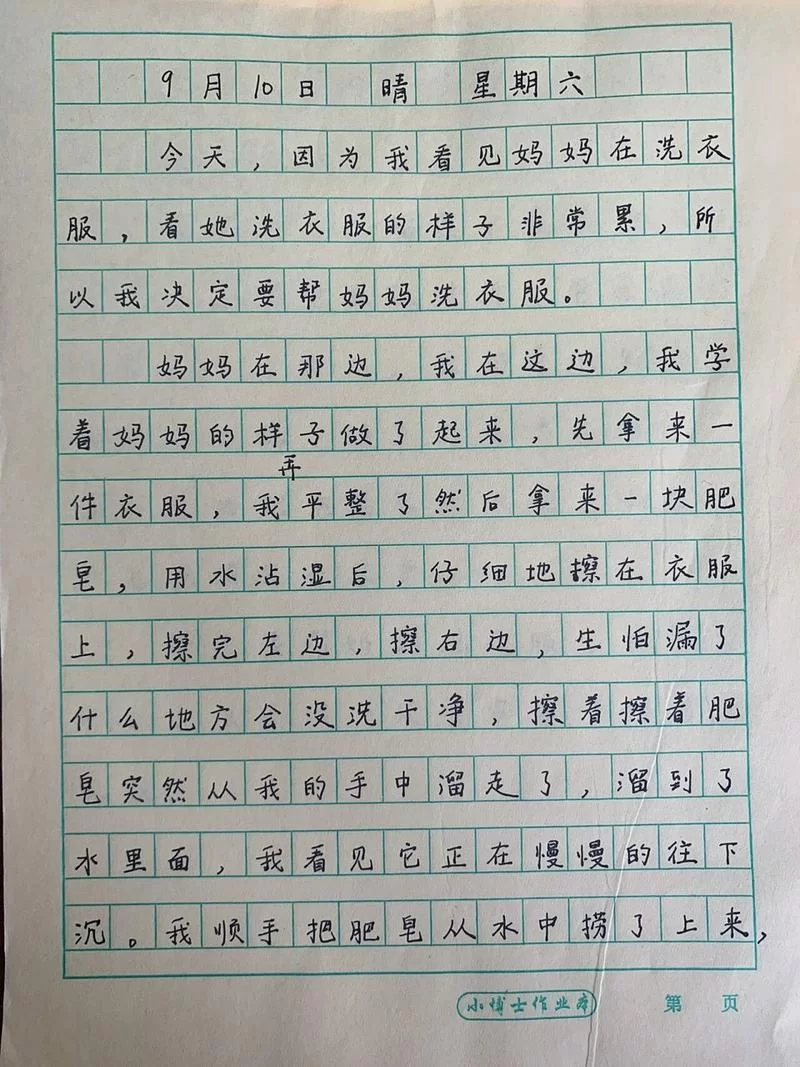 9月10日 晴 星期六
今天，因为我看见妈妈在洗衣
服，看她洗衣服的样子非常累，所
以我决定要帮妈妈洗衣服。
妈妈在那边，我在这边，我学
着妈妈的样子做了起来，先拿来一
再
件衣服，我平整了然后拿来一块肥
皂，用水沾湿后，仔细地擦在衣服
上，擦完左边，擦右边，生怕漏了
什么地方会没洗干净，擦着擦着肥
皂突然从我的手中溜走了，溜到了
水里面，我看见它正在慢慢的往下
沉。我顺手把肥皂从水中捞了上来，
小博士作业本
第 页